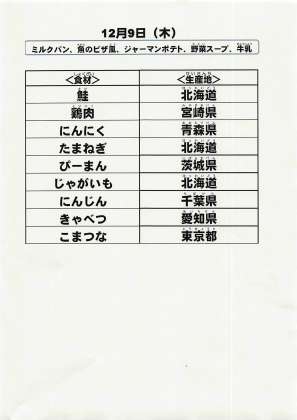 12月9日（木）
ミルクパン、魚のピザ風、ジャーマンポテト、野菜スープ、牛乳
＜食材＞ ＜生産地＞
鮭 北海道
鶏肉 宮崎県
にんにく 青森県
たまねぎ 北海道
ぴーまん 茨城県
じゃがいも 北海道
にんじん 千葉県
きゃべつ 愛知県
こまつな 東京都